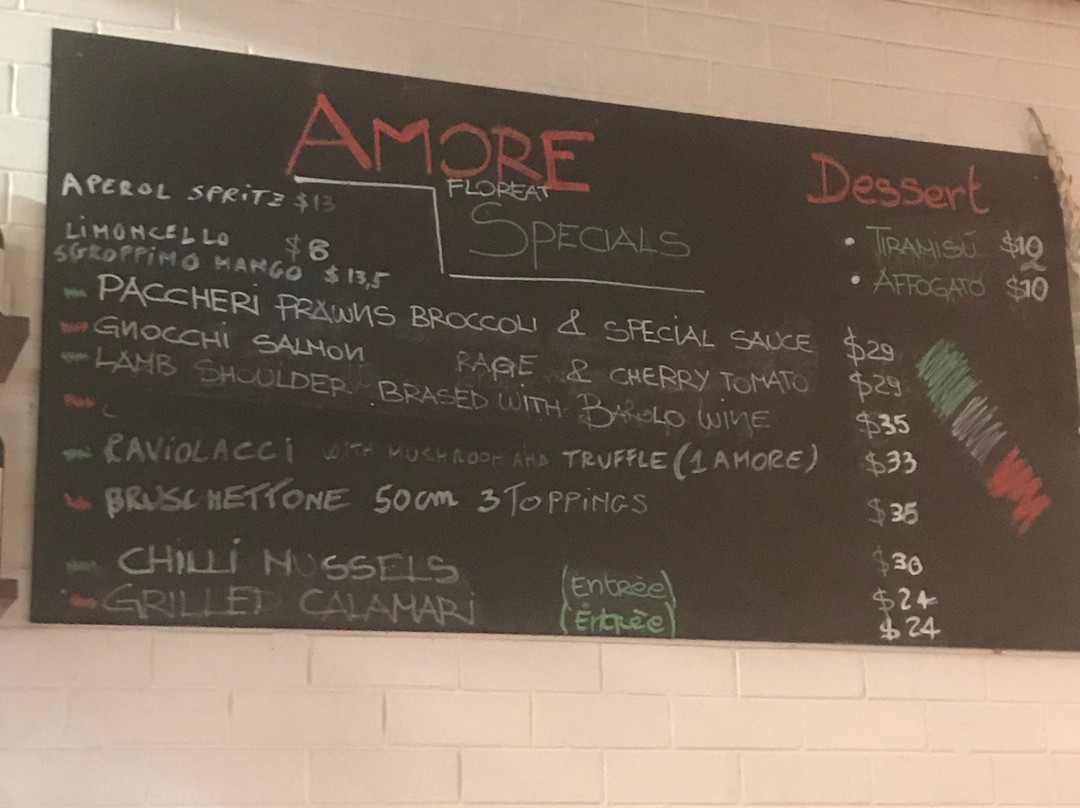 AMORE
FLOREAT
SPECIALS
APEROL SPRITZ $13
LIMONCELLO $8
SGROPPINO MANGO $13,5
Dessert
• TIRAMISÚ $10
• AFFOGATO $10
- PACCHERI PRAWNS BROCCOLI & SPECIAL SAUCE $29
- GNOCCHI SALMON RAGE & CHERRY TOMATO $29
- LAMB SHOULDER BRASED WITH BAROLO WINE $35
- RAVIOLACCI WITH MUSHROOM AND TRUFFLE (1 AMORE) $33
- BRUSCHETTONE 50cm 3 TOPPINGS $35
- CHILLI MUSSELS $30
(Entrèe) $24
- GRILLED CALAMARI (Entrèe) $24